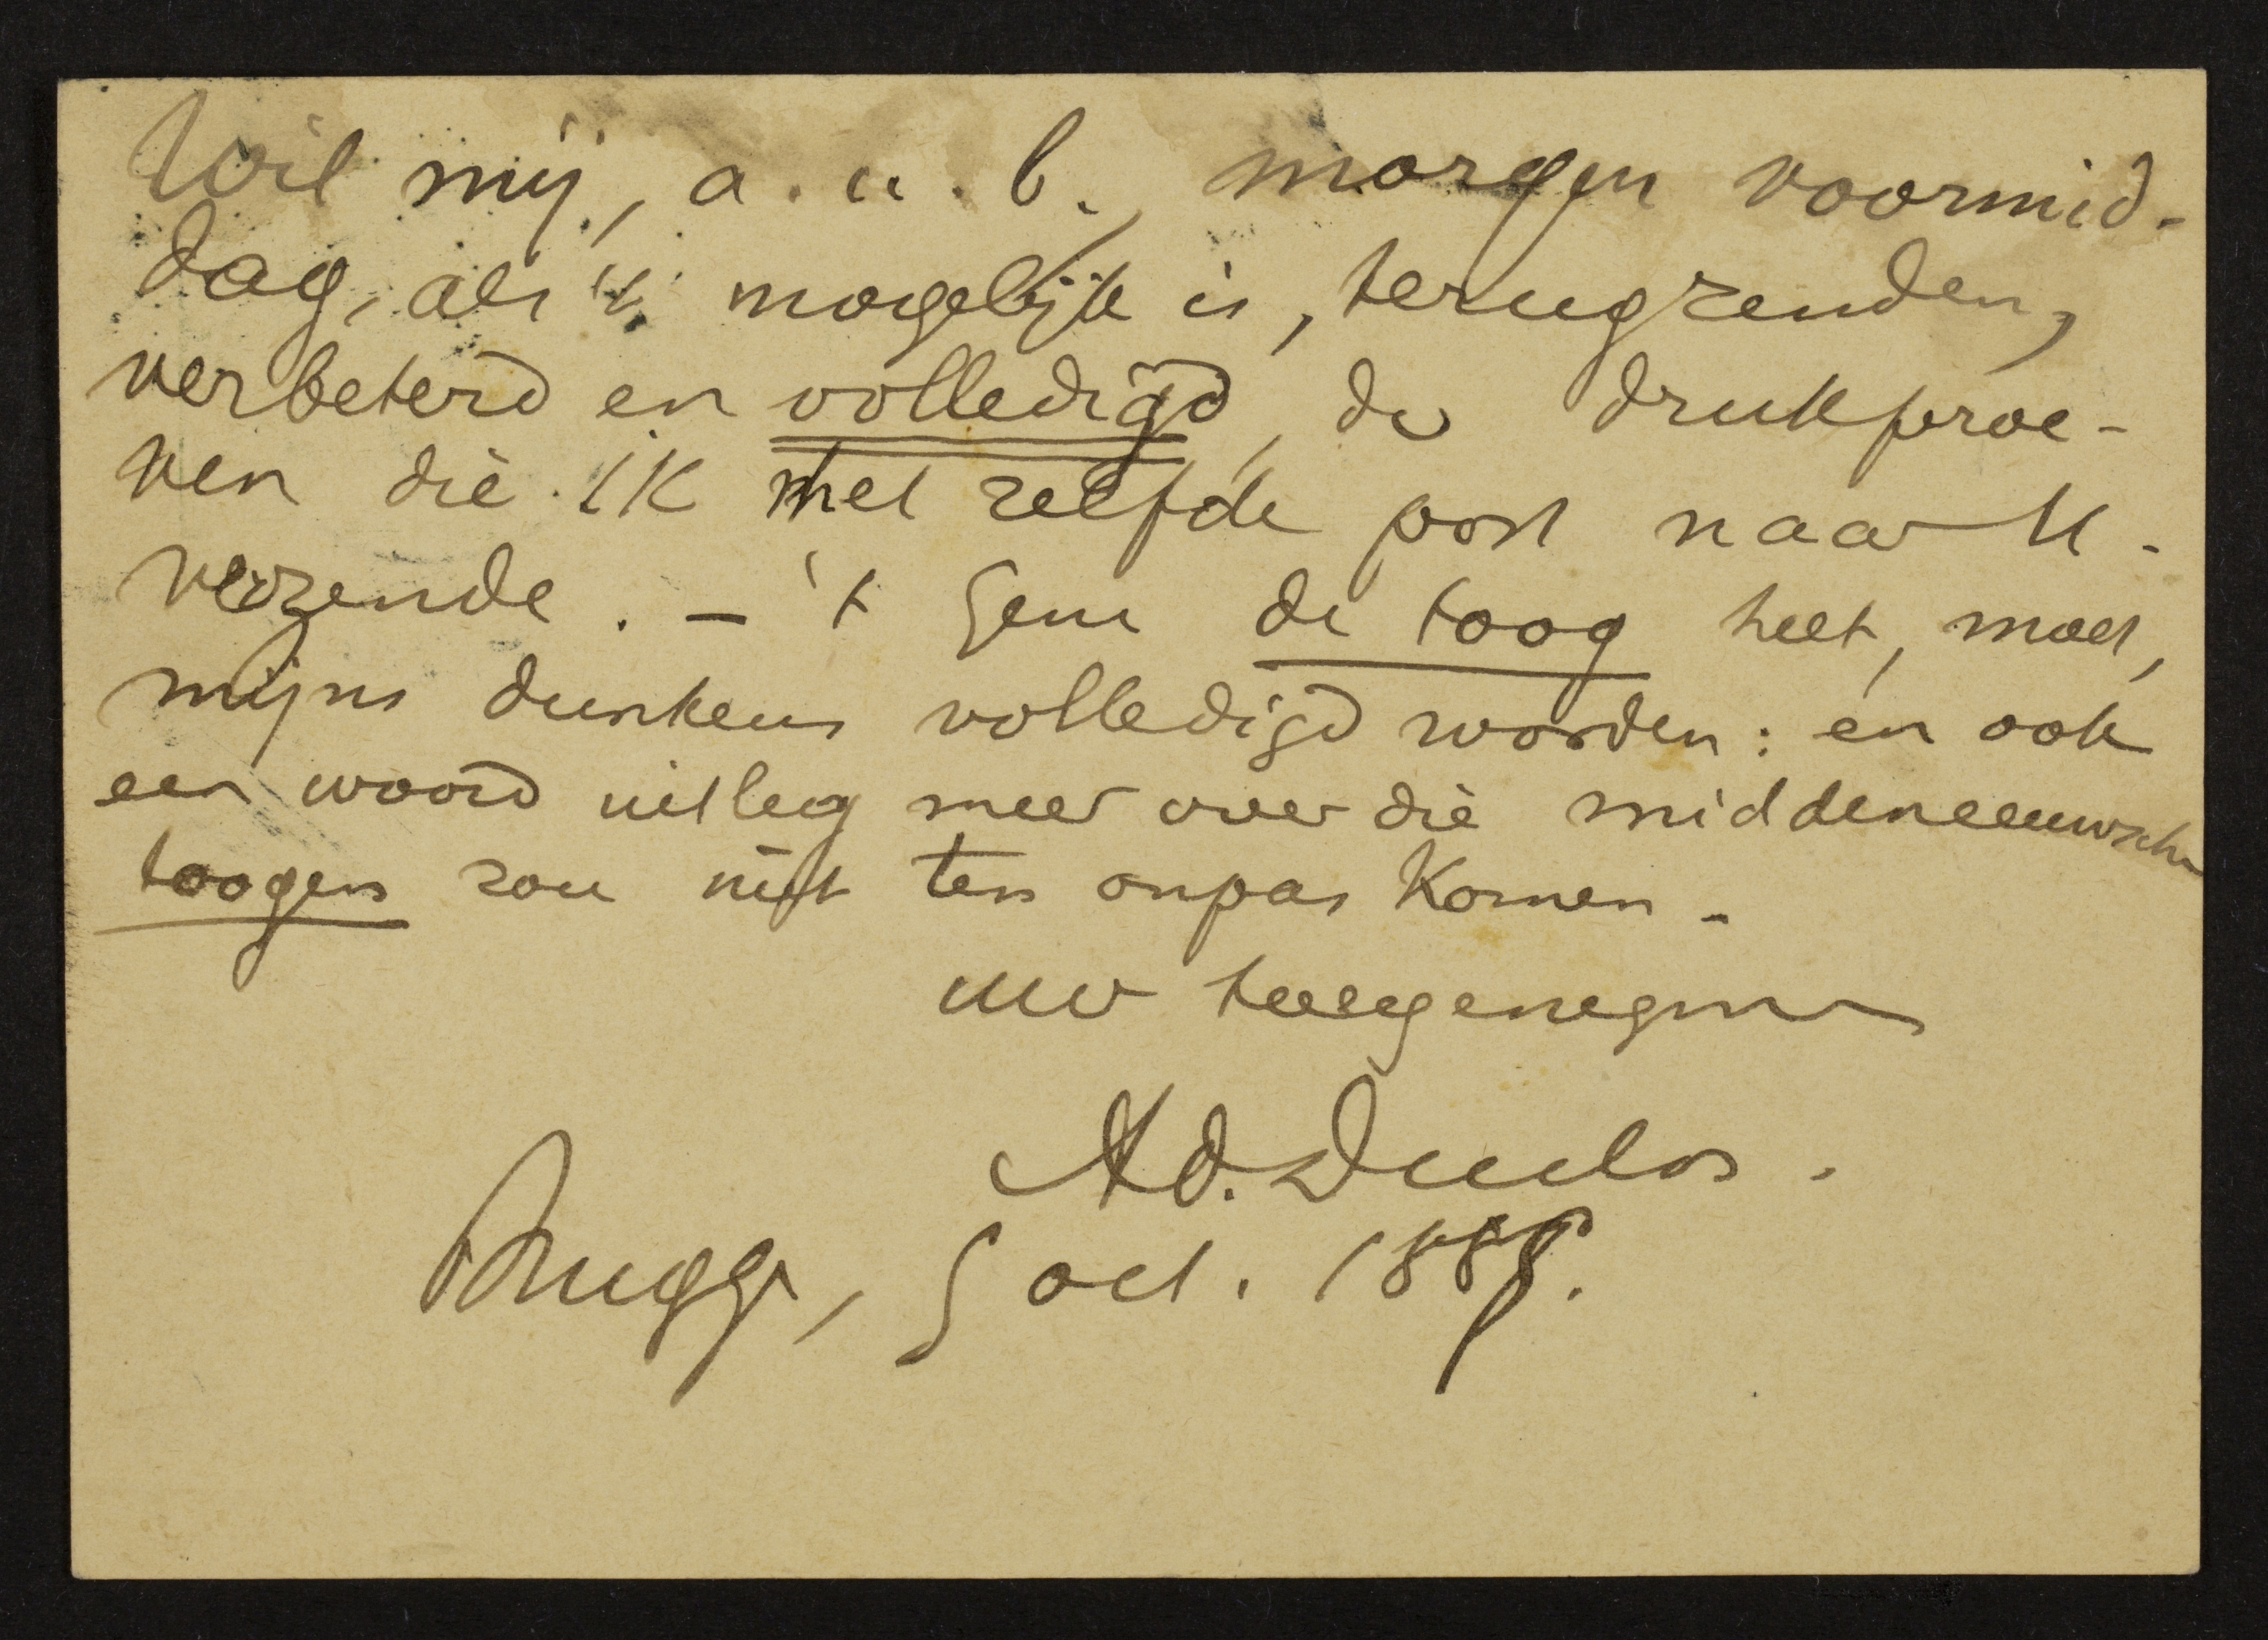 Wil mij, a. u. b., morgen voormid-
dag, als 't mogelijk is, terugzenden,
verbeterd en volledigd, de drukproe-
ven die ik met zelfde post naar U.
verzende. - 't Gene de toog heet, moet,
mijns dunkens volledigd worden: en ook
een woord uitleg meer over die middeneeuwsche
toogen zou niet ten onpas komen.
uw toegenegen
Ad. Duclos.
Brugge, 5 oct. 1888.